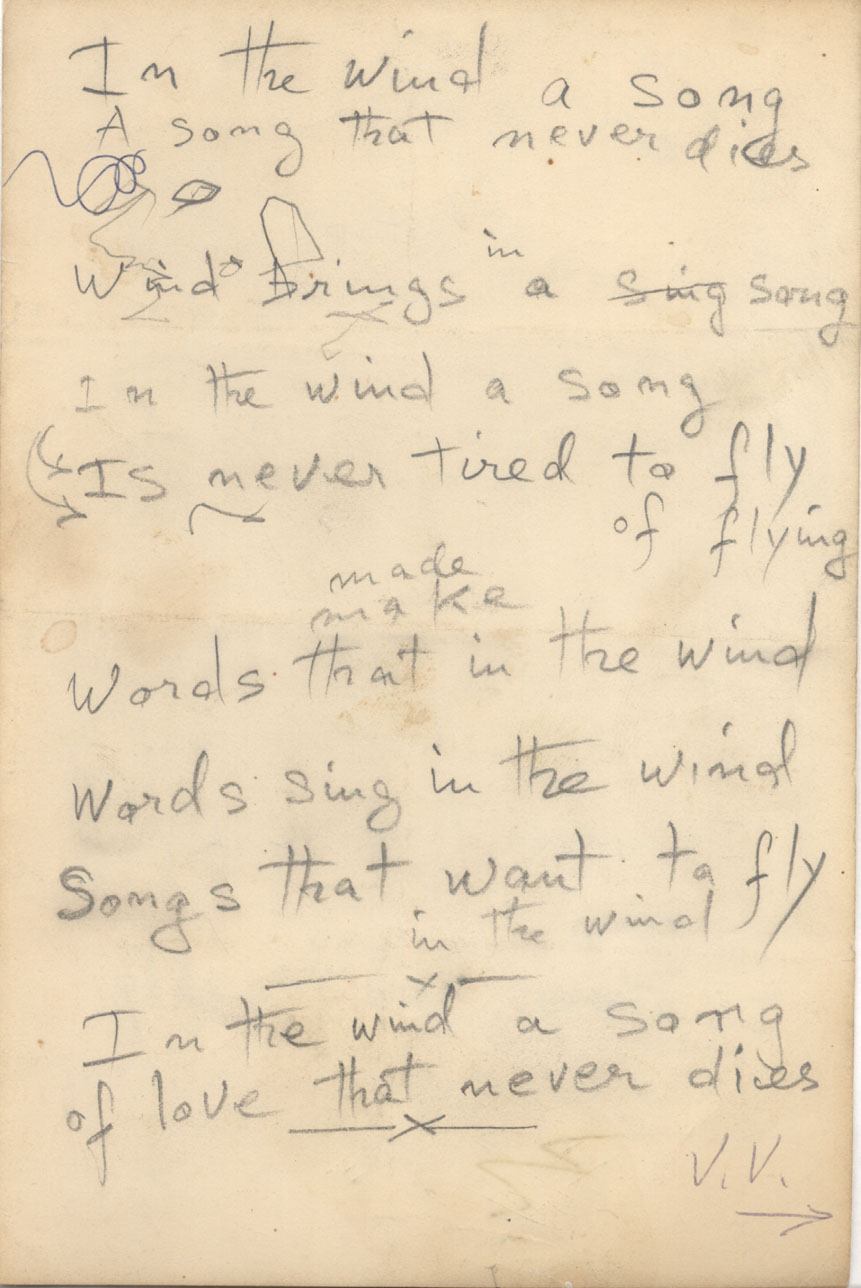 In the wind a song
A song that never dies
in
Wind brings a sing song
In the wind a song
Is never tired to fly
of flying
made
make
Words that in the wind
Words sing in the wind
Songs that want to fly
in the wind
In the wind a song
of love that never dies
V.V.